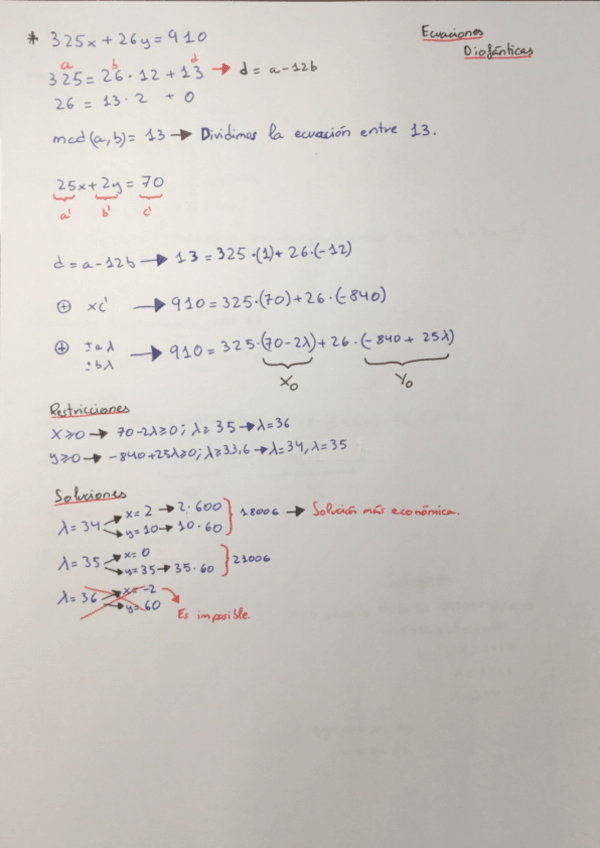 * 325x + 26y = 910
Ecuaciones
Diofánticas
a b d
325 = 26 · 12 + 13 → d = a - 12b
26 = 13 · 2 + 0
mcd(a,b) = 13 → Dividimos la ecuación entre 13.
25x + 2y = 70
a' b' c'
d = a - 12b → 13 = 325 · (1) + 26 · (-12)
⊕ xc' → 910 = 325 · (70) + 26 · (-840)
⊕ ±aλ ±bλ → 910 = 325 · (70 - 2λ) + 26 · (-840 + 25λ)
X₀ Y₀
Restricciones
X ≥ 0 → 70 - 2λ ≥ 0; λ ≥ 35 → λ = 36
y ≥ 0 → -840 + 25λ ≥ 0; λ ≥ 33,6 → λ = 34, λ = 35
Soluciones
λ = 34 → x = 2 → 2 · 600
→ y = 10 → 10 · 60
1800€ → Solución más económica.
λ = 35 → x = 0
→ y = 35 → 35 · 60
2100€
λ = 36 → x = -2
→ y = 60
Es imposible.